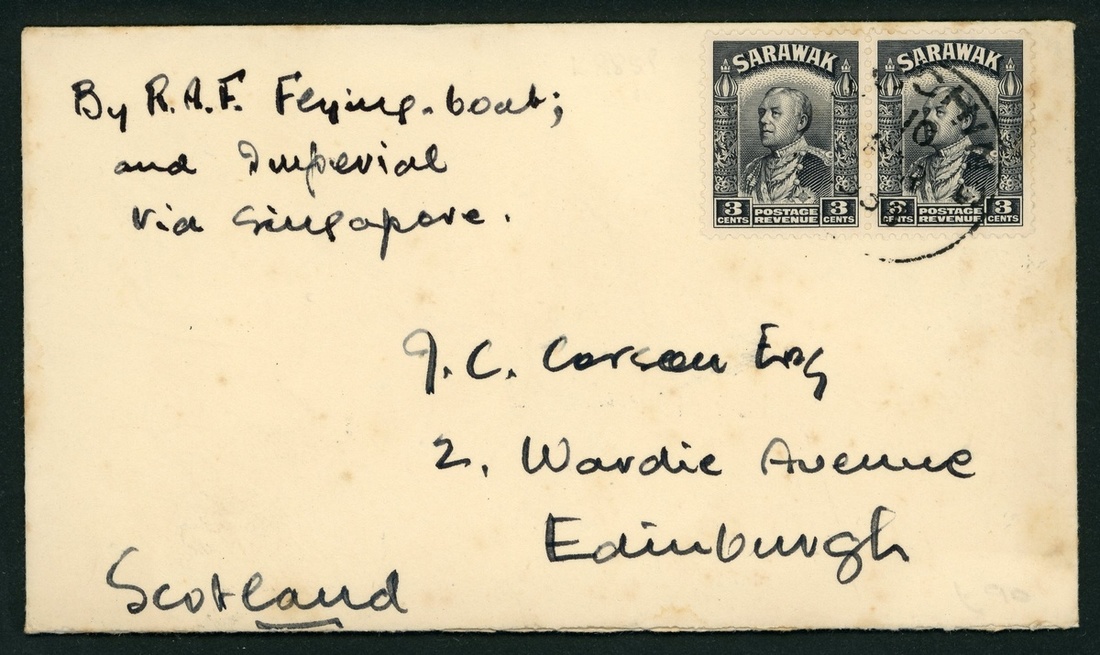 By R.A.F. Flying-boat;
and Imperial
via Singapore.
SARAWAK
3 CENTS POSTAGE REVENUE 3 CENTS
SARAWAK
3 CENTS POSTAGE REVENUE 3 CENTS
J. C. Carson Esq
2, Wardie Avenue
Edinburgh
Scotland